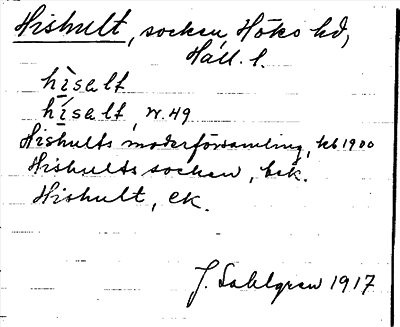 Hishult, socken, Höks hd,
Hall. l.
hìsalt
hísalt, v. 49
Hishults moderförsamling, kb 1900
Hishults socken, bsk.
Hishult, ek.
J. Sahlgren 1917